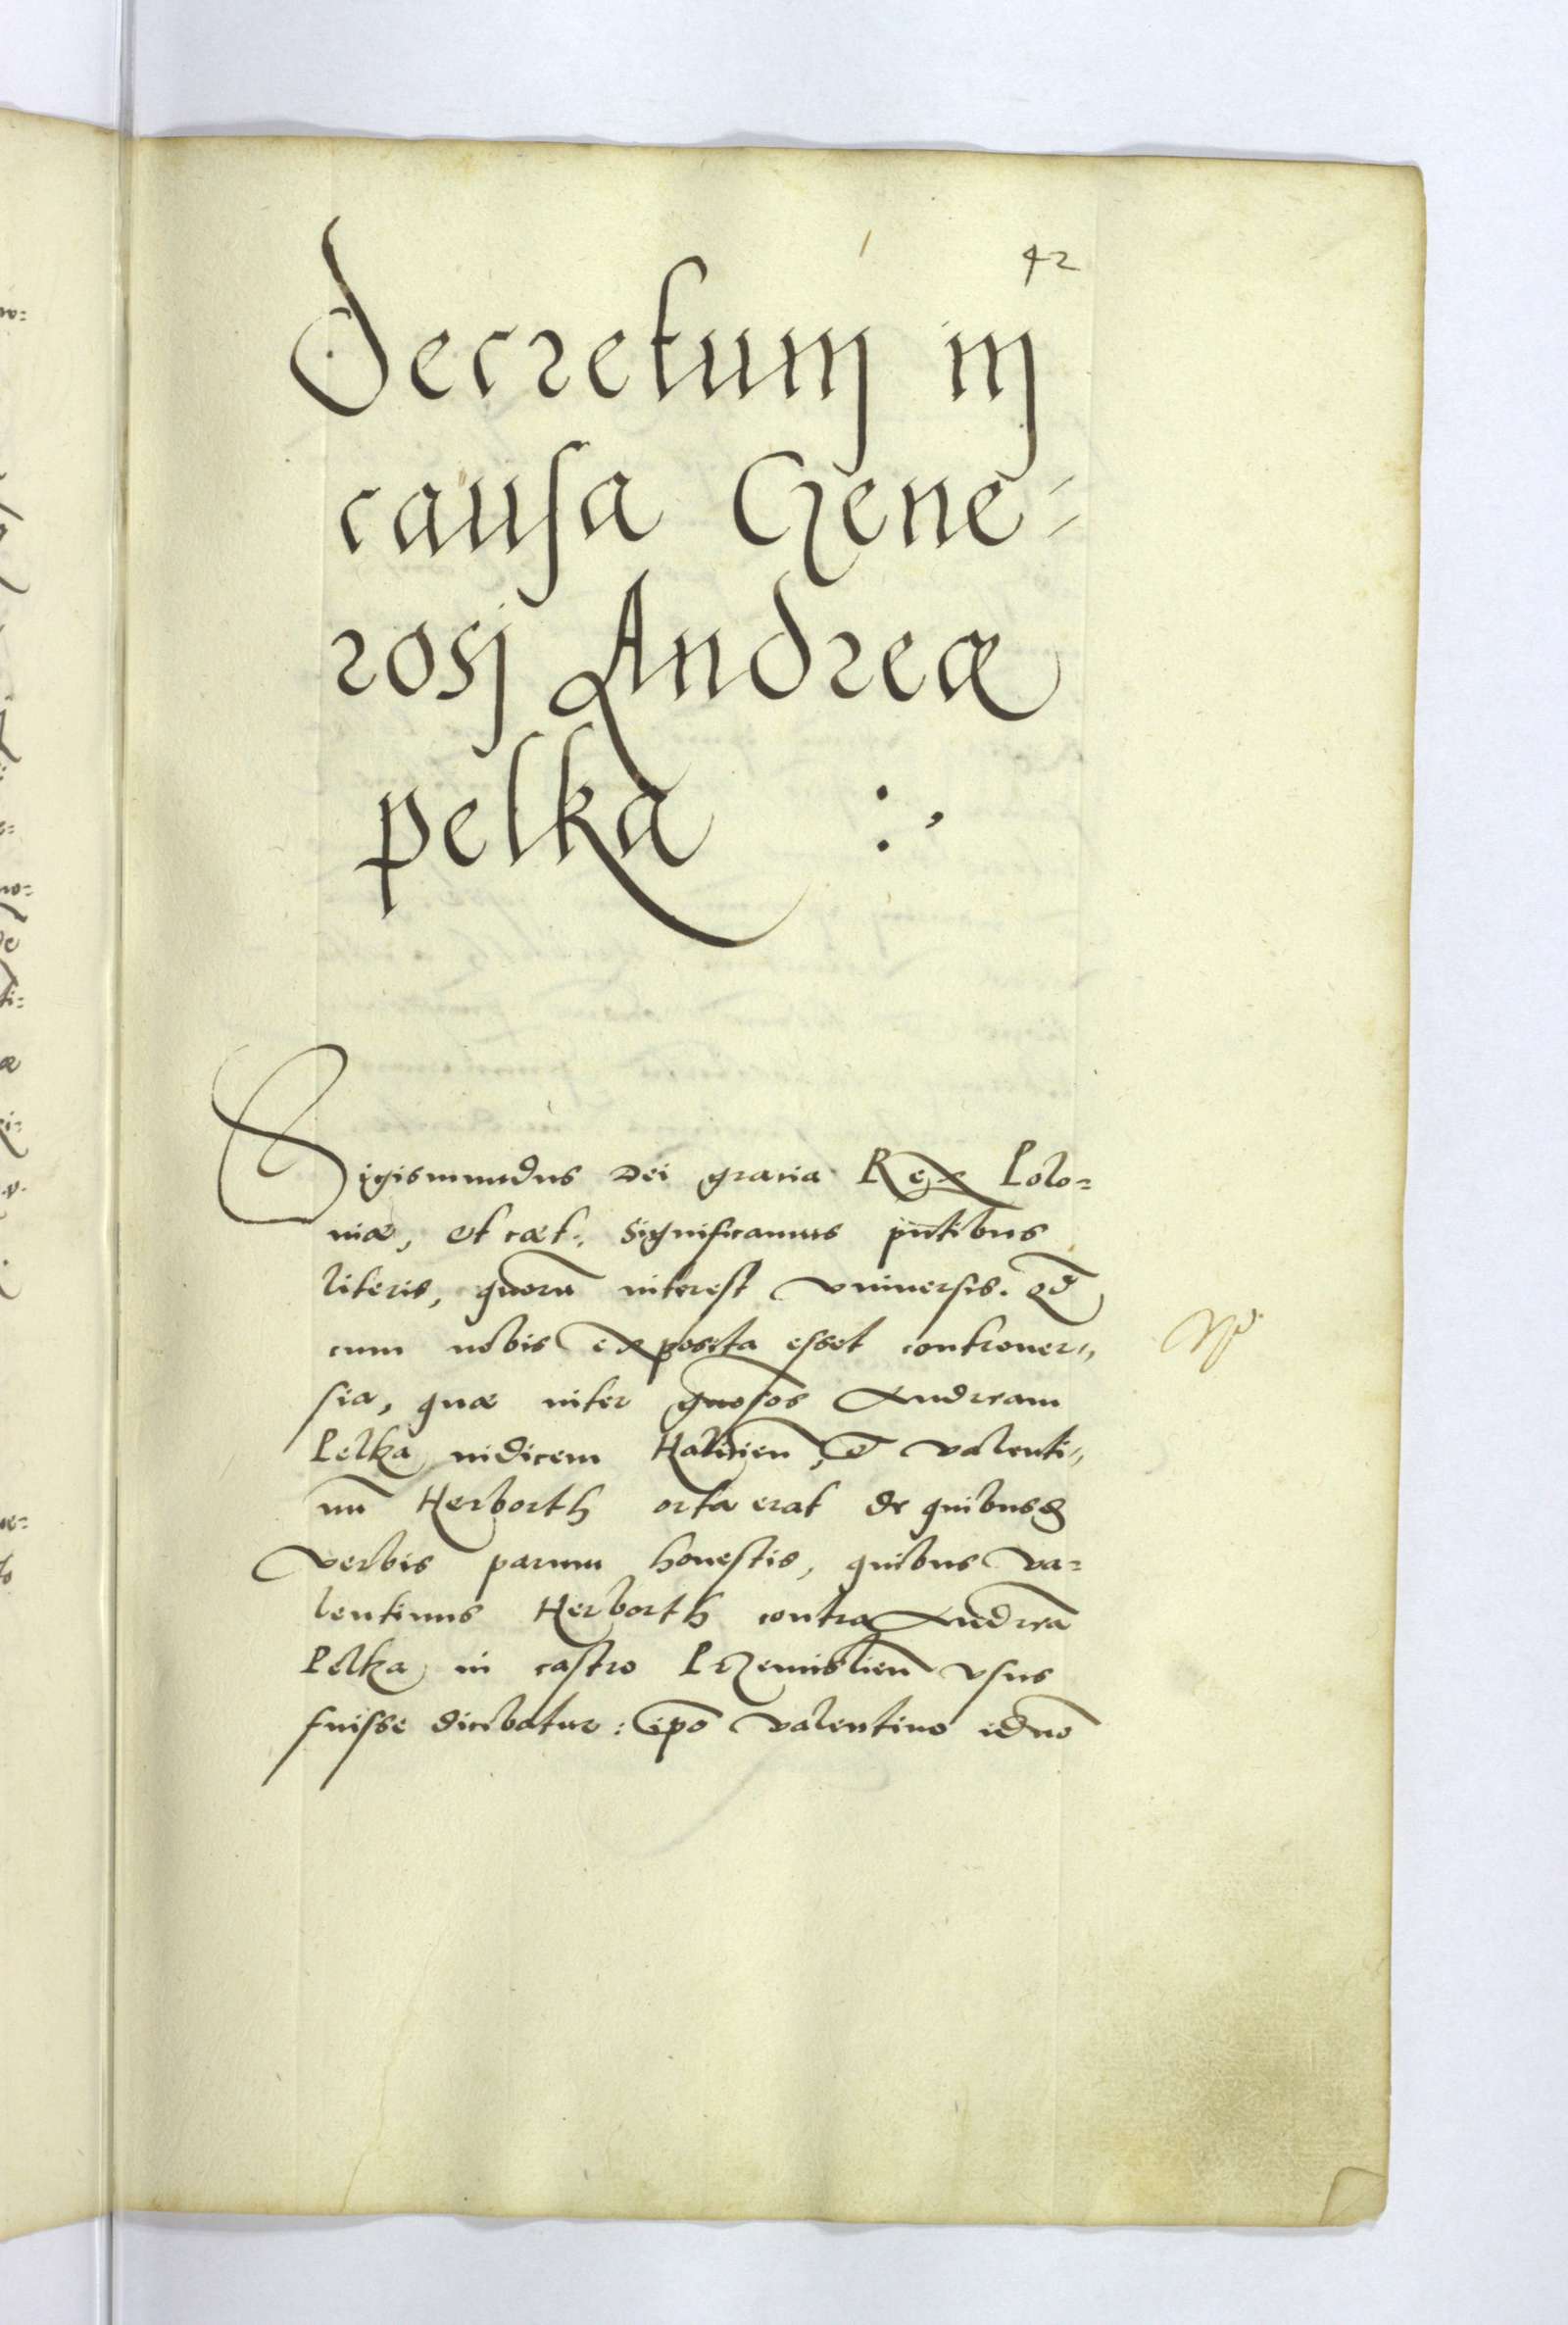 42
Decretum in
causa Gene-
rosj Andreæ
pelka :,
Sigismundus Dei gratia Rex Polo=
niæ, et cæt: Significamus pñtibus
literis, quorũ interest vniuersis. qđ
cum nobis exposita esset controuer„
sia, quæ inter gñosos Andream
Pelka iudicem Halicieñ, et Valenti„
nũ Herborth orta erat de quibusd
verbis parum honestis, quibus Va=
lentinus Herborth contra Andreã
Pelka in castro Przemislieñ vsus
fuisse dicebatur: ipõ Valentino id nõ